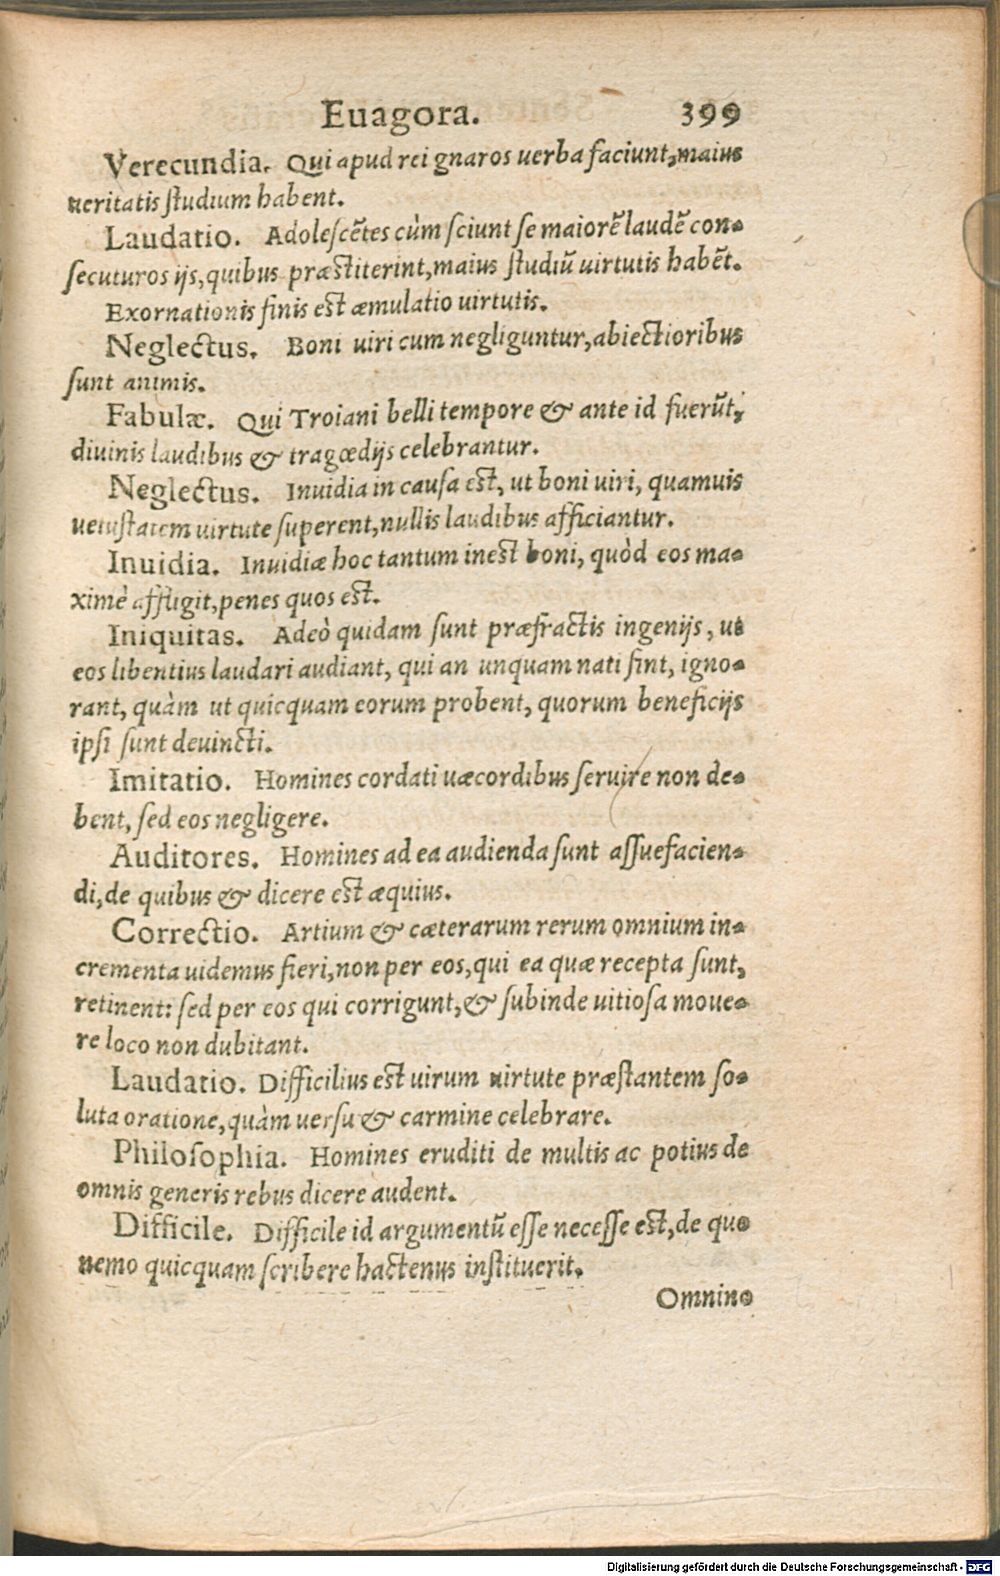 Euagora. 399
Verecundia. Qui apud rei gnaros uerba faciunt, maius
ueritatis studium habent.
Laudatio. Adolescẽtes cùm sciunt se maiorẽ laudẽ con-
secuturos ijs, quibus præstiterint, maius studiũ uirtutis habẽt.
Exornationis finis est æmulatio uirtutis.
Neglectus. Boni uiri cum negliguntur, abiectioribus
sunt animis.
Fabulæ. Qui Troiani belli tempore & ante id fuerũt,
diuinis laudibus & tragœdijs celebrantur.
Neglectus. Inuidia in causa est, ut boni uiri, quamuis
uetustatem uirtute superent, nullis laudibus afficiantur.
Inuidia. Inuidiæ hoc tantum inest boni, quòd eos ma-
ximè affligit, penes quos est.
Iniquitas. Adeò quidam sunt præfractis ingenijs, ut
eos libentius laudari audiant, qui an unquam nati sint, igno-
rant, quàm ut quicquam eorum probent, quorum beneficijs
ipsi sunt deuincti.
Imitatio. Homines cordati uæcordibus seruire non de-
bent, sed eos negligere.
Auditores. Homines ad ea audienda sunt assuefacien-
di, de quibus & dicere est æquius.
Correctio. Artium & cæterarum rerum omnium in-
crementa uidemus fieri, non per eos, qui ea quæ recepta sunt,
retinent: sed per eos qui corrigunt, & subinde uitiosa moue-
re loco non dubitant.
Laudatio. Difficilius est uirum uirtute præstantem so-
luta oratione, quàm uersu & carmine celebrare.
Philosophia. Homines eruditi de multis ac potius de
omnis generis rebus dicere audent.
Difficile. Difficile id argumentũ esse necesse est, de quo
nemo quicquam scribere hactenus instituerit.
Omnino
Digitalisierung gefördert durch die Deutsche Forschungsgemeinschaft - DFG